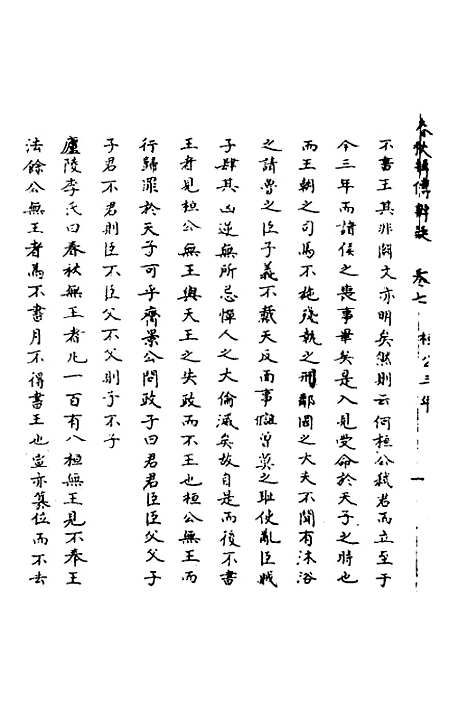 春秋輯傳辨疑　卷七　桓公三年　一
不書王其非闕文亦明矣然則云何桓公弒君而立至于
今三年而諸侯之喪事畢矣是入見受命於天子之時也
而王朝之司馬不施殘執之刑鄰國之大夫不聞有沐浴
之請魯之臣子義不戴天反面事讎曾莫之恥使亂臣賊
子肆其凶逆無所忌憚人之大倫滅矣故自是而後不書
王者見桓公無王與天王之失政而不王也桓公無王而
行歸罪於天子可乎齊景公問政子曰君君臣臣父父子
子君不君則臣不臣父不父則子不子
廬陵李氏曰春秋無王者凡一百有八桓無王見不奉王
法餘公無王者為不書月不得書王也宣亦篡位而不去